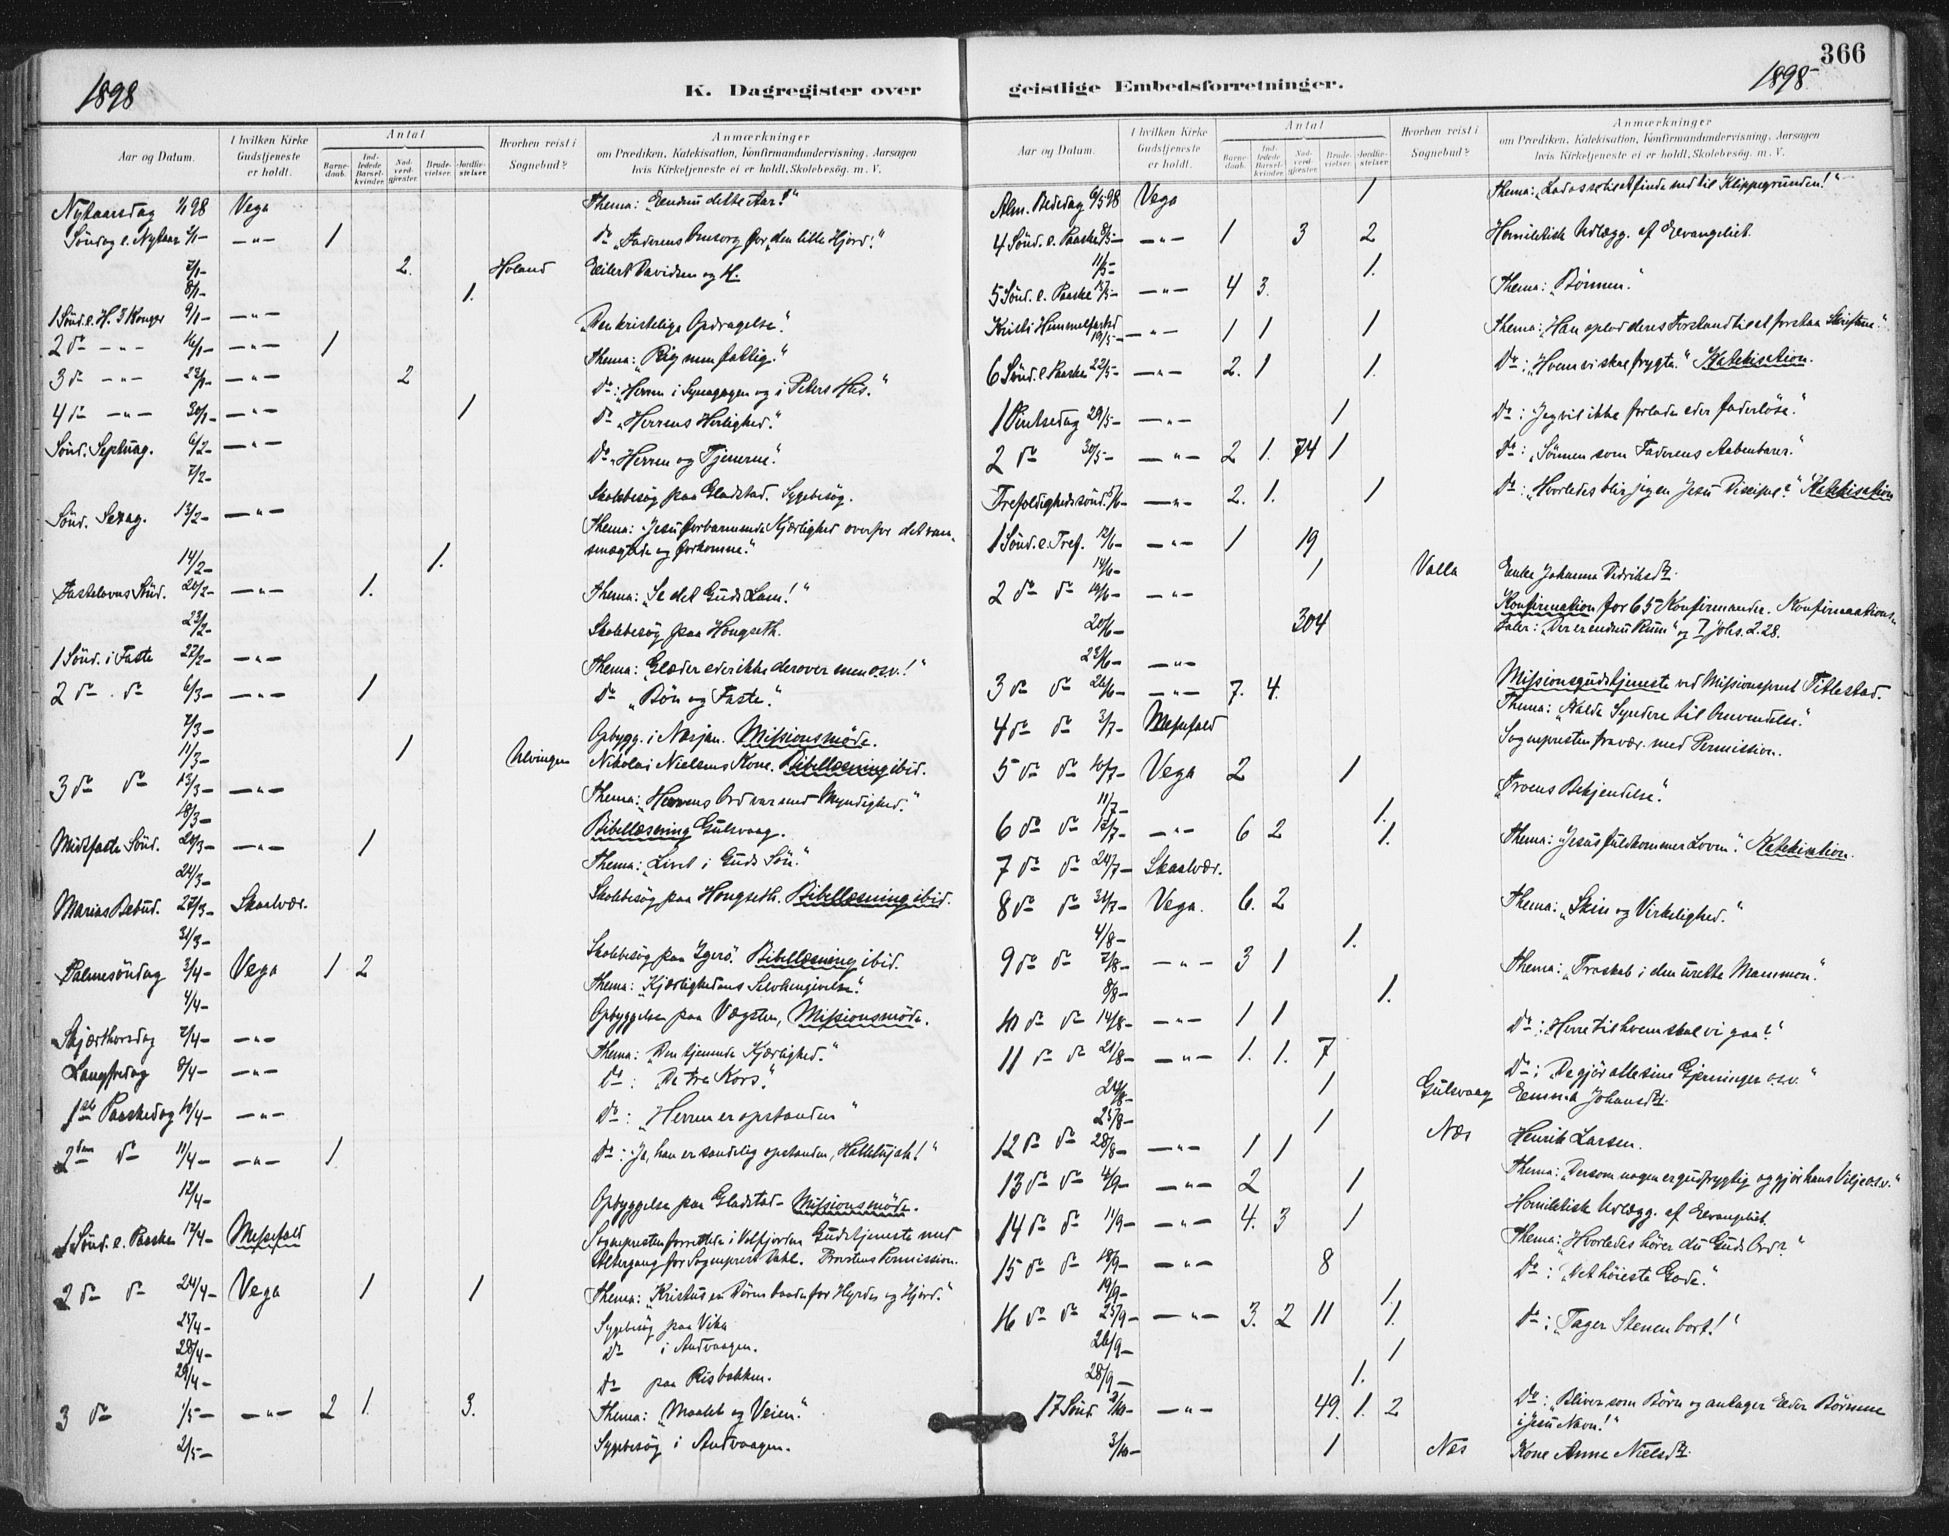 366
1898
K. Dagregister over
geistlige Embedsforretninger.
1898
Aar og Datum.
I hvilken Kirke Gudstjeneste er holdt.
Antal
Barnedaab.
Indledede Barselkvinder.
Nadverdgjester.
Brudevielser.
Jordfæstelser.
Hvorhen reist i Sognebud?
Anmærkninger
om Prædiken, Katekisation, Konfirmandundervisning, Aarsagen
hvis Kirketjeneste ei er holdt, Skolebesög. m. V.
Nytaarsdag 1/1 98 Vega Thema: „Endnu dette Aar!“
Søndag e. Nytaar 2/1 — „ — 1 do „Faderens Omsorg for „den lille Hjord“.“
7/1 2. Holand Eilert Davidsen og H.
8/1 1.
1 Sønd. e. H. 3 Konger 9/1 — „ — „Den kristelige Opdragelse“.
2 do — „ — 16/1 — „ — 1 Thema: „Rig men fattig.“
3 do — „ — 23/1 — „ — 2 Do: „Herren i Synagogen og i Peters Hus.“
4 do — „ — 30/1 — „ — 1 do „Herrens Herlighed“.
Sønd. Septuag. 6/2 — „ — Do „Herren og Tjenerne“.
7/2 Skolebesøg paa Gladstad. Sygebesøg.
Sønd. Sexag. 13/2 — „ — Thema: „Jesu forbarmende Kjærlighed overfor det van-
smægtede og forkomne.“
14/2 1.
Fastelavns Sønd. 20/2 — „ — 1. Thema: „Se det Guds Lam!“
23/2 Skolebesøg paa Hongseth.
1 Sønd. i Faste 27/2 — „ — Thema: „Glæder eder ikke derover men o.s.v.!“
2 do do 6/3 — „ — 1 do „Bøn og Faste“.
7/3 Opbygg. i Nærjan. Missionsmøde.
11/3 1 Ulvingen Nikolai Nielsens Kone. Bibellæsning ibid.
3 do do 13/3 — „ — Thema: „Herrens Ord var med Myndighed“.
18/3 Bibellæsning Gulsvaag.
Midfaste Sønd. 20/3 — „ — 1 Thema: „Livet i Guds Søn.“
24/3 Skolebesøg paa Hongseth. Bibellæsning ibid.
Mariæ Bebud. 27/3 Skaalvær.
31/3 Skolebesøg paa Igerø. Bibellæsning ibid.
Palmesøndag 3/4 Vega 1 2 Thema: „Kjærlighedens Selvhengivelse“.
4/4 Opbyggelse paa Vægsten, Missionsmøde.
Skjærthorsdag 7/4 — „ — Thema: „Den tjenende Kjærlighed.“
Langfredag 8/4 — „ — Do: „De tre Kors“.
1ste Paaskedag 10/4 — „ — Do: „Herren er opstanden“
2den do 11/4 — „ — 1. Do: „Ja, han er sandelig opstanden, Hallelujah!“
12/4 Opbyggelse paa Gladstad – Missionsmøde.
1 Sønd. e. Paaske 17/4 Mesefald Sognepresten forrettede i Velfjorden Gudstjeneste med
Altergang for Sogneprest Dahl. Provstens Permission.
2 do do 24/4 Vega 1 1 Thema: „Kristus en Dør baade for Hyrder og Hjord.“
25/4 Sygebesøg paa Vika
28/4 Do i Andvaagen.
29/4 do paa Risbakken.
3 do 1/5 — „ — 2 1. 3. Thema: „Maalet og Veien“.
2/5 Sygebesøg i Andvaagen.
Aar og Datum.
I hvilken Kirke Gudstjeneste er holdt.
Antal
Barnedaab.
Indledede Barselkvinder.
Nadverdgjester.
Brudevielser.
Jordfæstelser.
Hvorhen reist i Sognebud?
Anmærkninger
om Prædiken, Katekisation, Konfirmandundervisning, Aarsagen
hvis Kirketjeneste ei er holdt, Skolebesög. m. V.
Alm. Bededag 6/5 98 Vega 1 Thema: „Lad os se til at finde ned til Klippegrunden!“
4 Sønd. e. Paaske 8/5 — „ — 1 3 2 Homiletisk Udlægg. af Evangeliet.
11/5 1.
5 Sønd. e. Paaske 15/5 — „ — 4 3. Thema: „Bønnen“.
Kristi Himmelfartsd 19/5 — „ — 1 1 1 Thema: „Han oplod deres Forstand til at forstaa Skrifterne“.
6 Sønd. e. Paaske 22/5 — „ — 2. 1 1. Do: „Hvem vi skal frygte.“ Katekisation.
1 Pintsedag 29/5 — „ — 1 Do: „Jeg vil ikke forlade eder faderløse.“
2 do 30/5 — „ — 2 1. 74 1 Do: „Sønnen som Faderens Aabenbarer“.
Trefoldighedssønd. 5/6 — „ — 2. 1. 1 Do: „Hvorledes blir jeg en Jesu Discipel?“ Katekisation
1 Sønd. e. Tref. 12/6 — „ — 1 19
14/6 1 Valla Enke Johanna Didriksdtr.
2 do do 19/6 — „ — Konfirmation for 65 Konfirmander. Konfirmations-
20/6 304 taler: „Der er endnu Rum“ og I Johs. 2.28.
23/6 — „ — Missionsgudstjeneste ved Missionsprest Tittestad.
3 do do 26/6 — „ — 7. 4. Thema: „Kalde Syndere til Omvendelse“.
4 do do 3/7 Mesefald Sognepresten fravær. med Permission.
5 do do 10/7 Vega 2 1 „Troens Bekjendelse“.
11/7 1.
6 do do 17/7 — „ — 6 2 1. Thema: „Jesus fuldkommer Loven“. Katekisation.
7 do do 24/7 Skaalvær.
8 do do 31/7 Vega. 6. 2 Thema: „Skin og Virkelighed.“
4/8 1.
9 do do 7/8 — „ — 3 1 Thema: „Troskab i den urette Mammon“.
8/8 1.
10 do do 14/8 — „ — 1 1 Do: „Herre til hvem skal vi gaa?“
11 do do 21/8 — „ — 1. 1. 7 Do: „De gjør alle sine Gjerninger o.s.v.“
24/8 1 Gulsvaag Emma Johansdtr.
25/8 1 Næs Henrik Larsen.
12 do do 28/8 — „ — 1 1 Thema: „Dersom nogen er gudfrygtig og gjør hans Vilje o.s.v.“
13 do do 4/9 — „ — 2 1 Homiletisk Udlægg. af Evangeliet.
14 do do 11/9 — „ — 4. 3 1 Thema: „Hvorledes hører du Guds Ord?“
15 do do 18/9 — „ — 8 Do: „Det høieste Gode“.
19/9 1.
16 do do 25/9 — „ — 3. 2 11 1. Do: „Tager Stenen bort!“
26/9 1
28/9 1.
17 Sønd. 2/10 — „ — 49. 1. 2 Do: „Bliver som Børn og antager Eder Børnene
i Jesu Navn!“
3/10 1 Næs Kone Anne Nielsdtr.